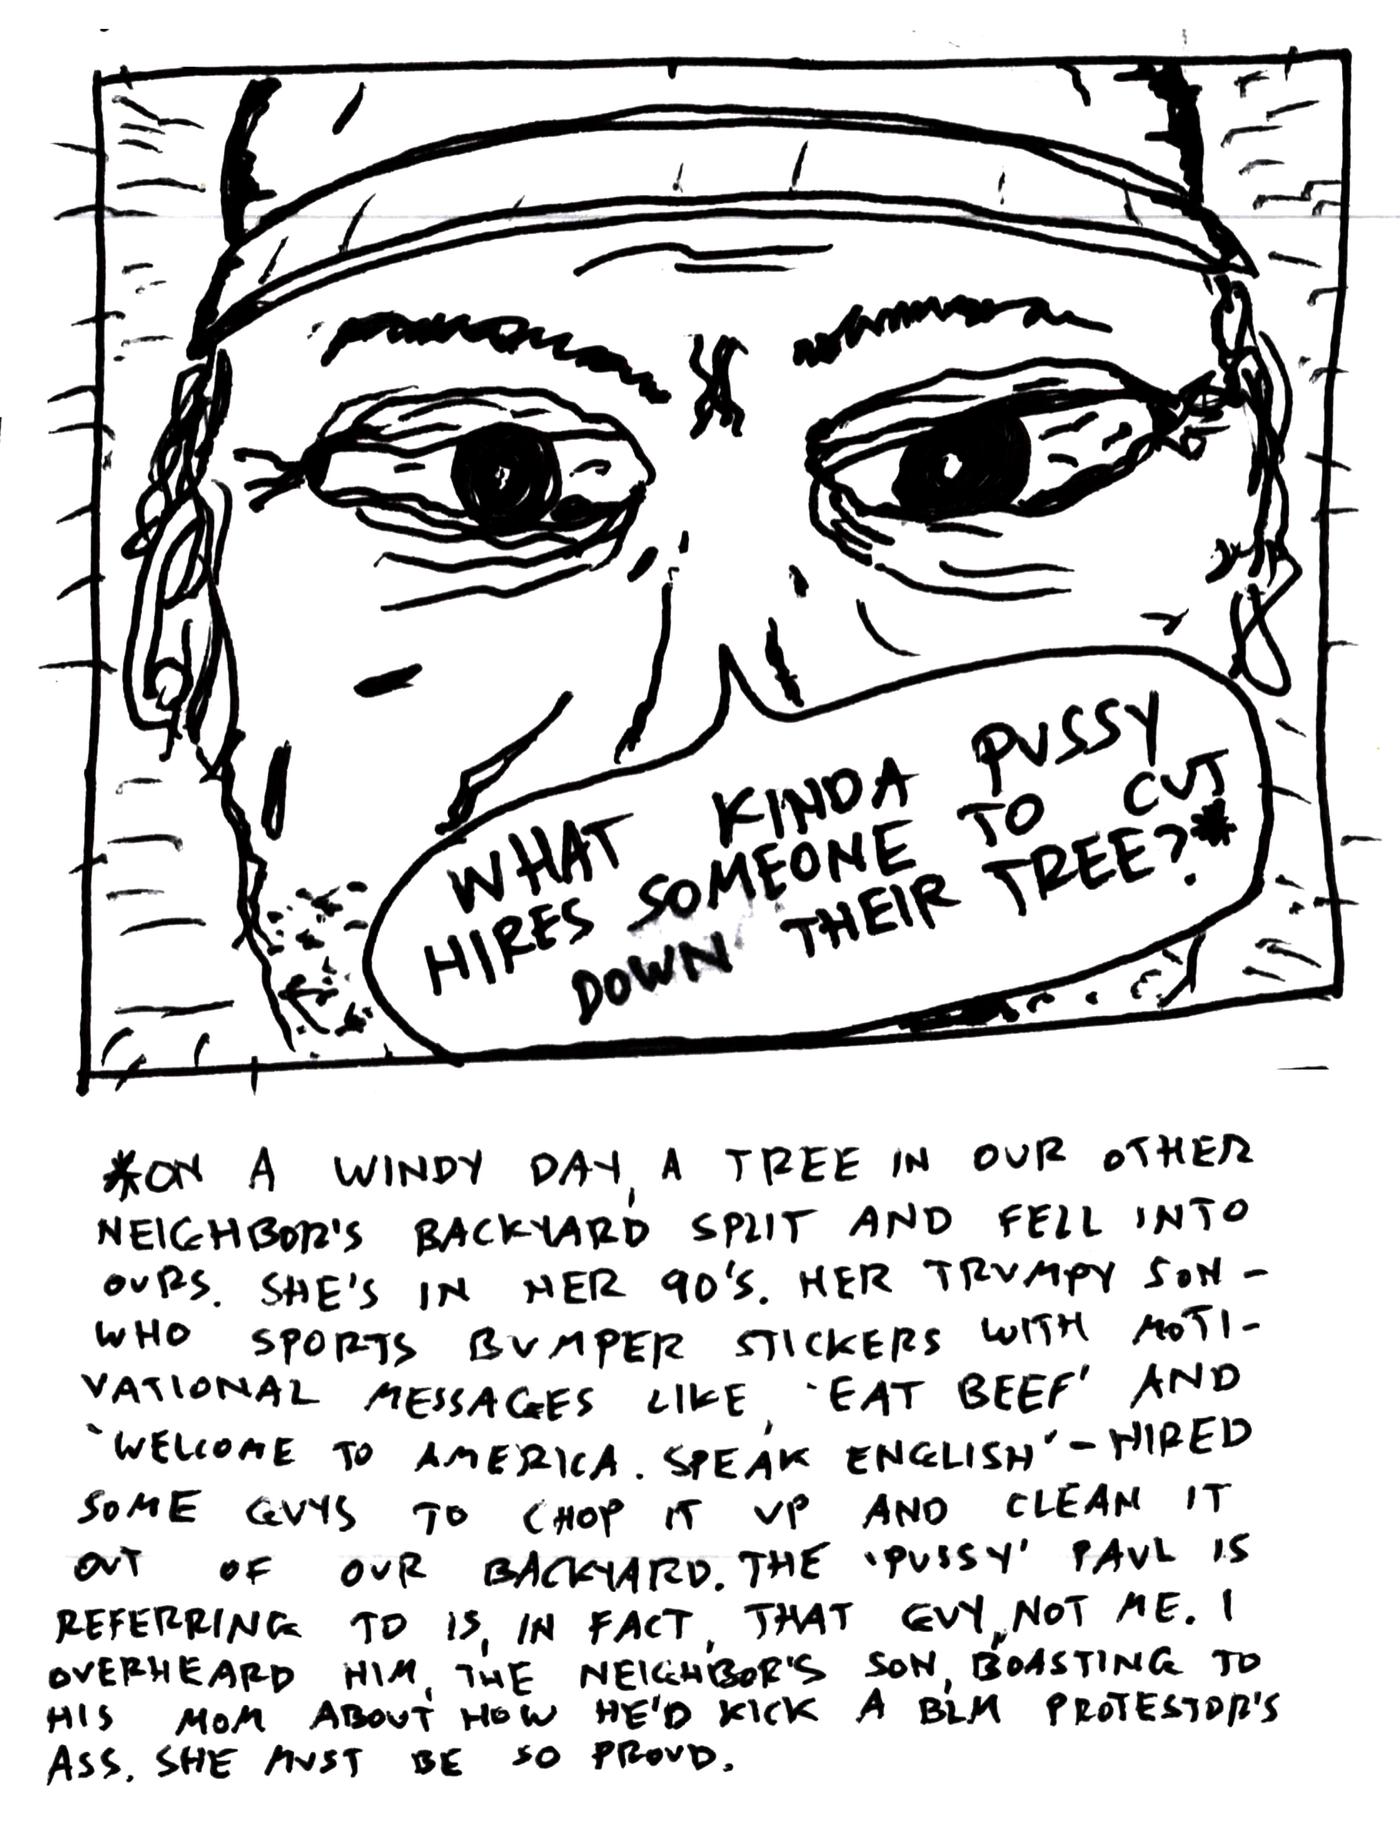 WHAT KINDA PUSSY
HIRES SOMEONE TO CUT
DOWN THEIR TREE?*
*ON A WINDY DAY, A TREE IN OUR OTHER
NEIGHBOR'S BACKYARD SPLIT AND FELL INTO
OURS. SHE'S IN HER 90'S. HER TRUMPY SON -
WHO SPORTS BUMPER STICKERS WITH MOTI-
VATIONAL MESSAGES LIKE, 'EAT BEEF' AND
'WELCOME TO AMERICA. SPEAK ENGLISH' - HIRED
SOME GUYS TO CHOP IT UP AND CLEAN IT
OUT OF OUR BACKYARD. THE 'PUSSY' PAUL IS
REFERRING TO IS, IN FACT, THAT GUY, NOT ME. I
OVERHEARD HIM, THE NEIGHBOR'S SON, BOASTING TO
HIS MOM ABOUT HOW HE'D KICK A BLM PROTESTOR'S
ASS. SHE MUST BE SO PROUD.